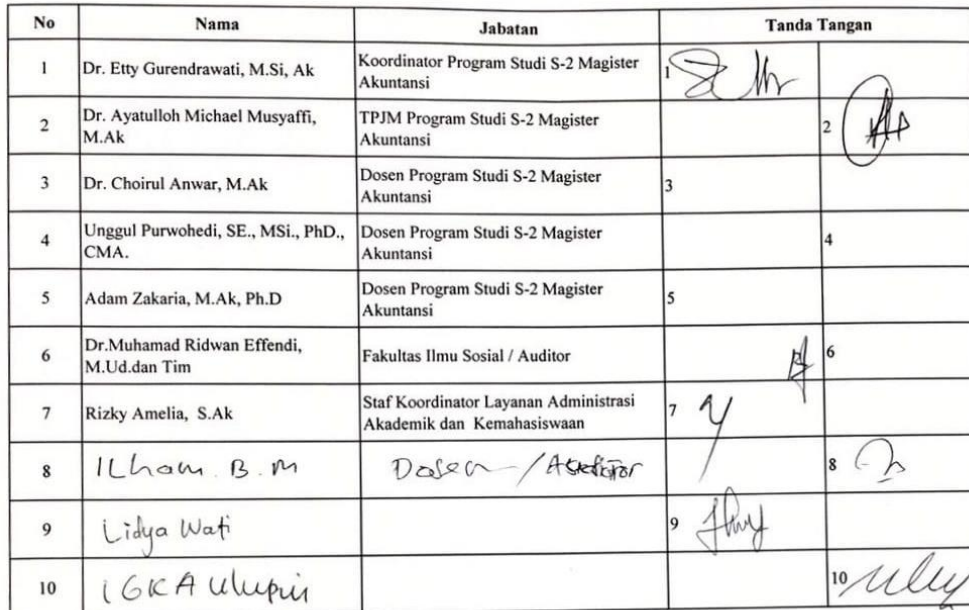 No Nama Jabatan Tanda Tangan
1 Dr. Etty Gurendrawati, M.Si, Ak Koordinator Program Studi S-2 Magister
Akuntansi 1
2 Dr. Ayatulloh Michael Musyaffi,
M.Ak TPJM Program Studi S-2 Magister
Akuntansi 2
3 Dr. Choirul Anwar, M.Ak Dosen Program Studi S-2 Magister
Akuntansi 3
4 Unggul Purwohedi, SE., MSi., PhD.,
CMA. Dosen Program Studi S-2 Magister
Akuntansi 4
5 Adam Zakaria, M.Ak, Ph.D Dosen Program Studi S-2 Magister
Akuntansi 5
6 Dr.Muhamad Ridwan Effendi,
M.Ud.dan Tim Fakultas Ilmu Sosial / Auditor 6
7 Rizky Amelia, S.Ak Staf Koordinator Layanan Administrasi
Akademik dan Kemahasiswaan 7
8 ILham. B. M Dosen / 8
9 Lidya Wati 9
10 IGKA Ulupui 10